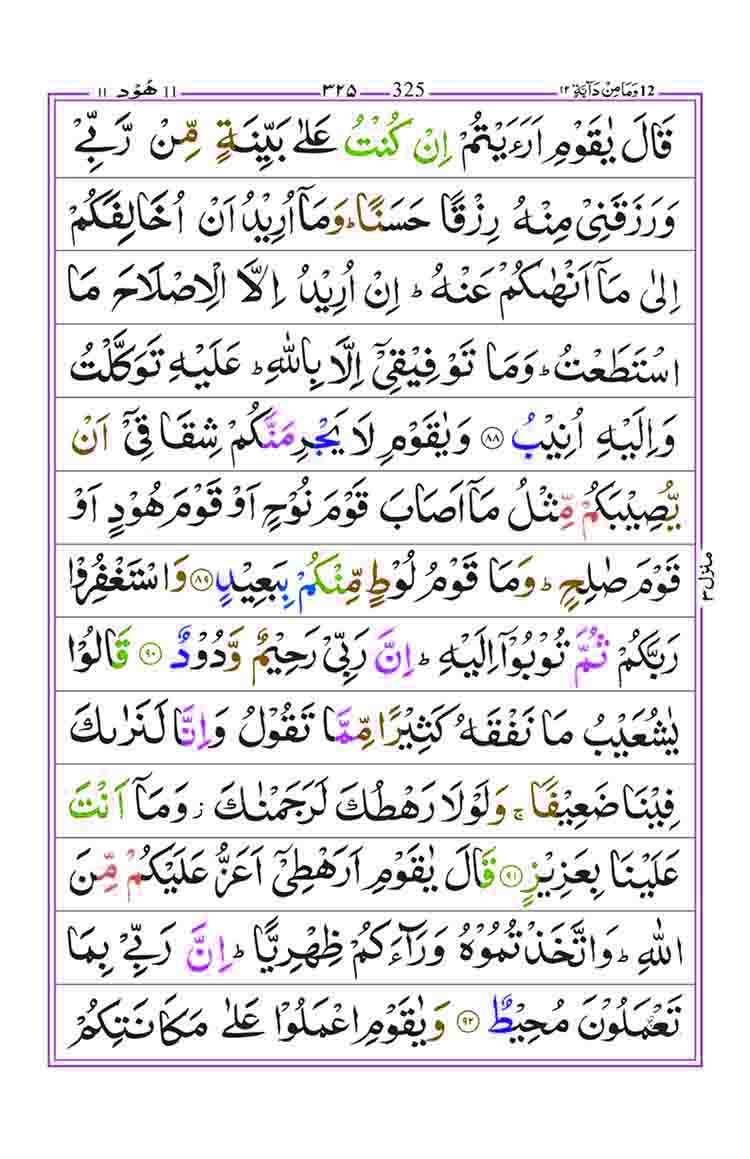 ١١ هُوۡد 11 ٣٢٥ 325 وَمَا مِنۡ دَآبَّةٍ ١٢ 12
قَالَ يٰقَوۡمِ اَرَءَيۡتُمۡ اِنۡ كُنۡتُ عَلٰى بَيِّنَةٍ مِّنۡ رَّبِّىۡ
وَرَزَقَنِىۡ مِنۡهُ رِزۡقًا حَسَنًا‌ ؕ وَّمَاۤ اُرِيۡدُ اَنۡ اُخَالِفَكُمۡ
اِلٰى مَاۤ اَنۡهٰٮكُمۡ عَنۡهُ‌ ؕ اِنۡ اُرِيۡدُ اِلَّا الۡاِصۡلَاحَ مَا
اسۡتَطَعۡتُ‌ ؕ وَمَا تَوۡفِيۡقِىۡۤ اِلَّا بِاللّٰهِ‌ ؕ عَلَيۡهِ تَوَكَّلۡتُ
وَاِلَيۡهِ اُنِيۡبُ ﴿۸۸﴾ وَيٰقَوۡمِ لَا يَجۡرِمَنَّكُمۡ شِقَاقِىۡۤ اَنۡ
يُّصِيۡبَكُمۡ مِّثۡلُ مَاۤ اَصَابَ قَوۡمَ نُوۡحٍ اَوۡ قَوۡمَ هُوۡدٍ اَوۡ
قَوۡمَ صٰلِحٍ‌ ؕ وَمَا قَوۡمُ لُوۡطٍ مِّنۡكُمۡ بِبَعِيۡدٍ ﴿۸۹﴾ وَاسۡتَغۡفِرُوۡا
رَبَّكُمۡ ثُمَّ تُوۡبُوۡۤا اِلَيۡهِ‌ ؕ اِنَّ رَبِّىۡ رَحِيۡمٌ وَّدُوۡدٌ ﴿۹۰﴾ قَالُوۡا
يٰشُعَيۡبُ مَا نَفۡقَهُ كَثِيۡرًا مِّمَّا تَقُوۡلُ وَاِنَّا لَنَرٰٮكَ
فِيۡنَا ضَعِيۡفًا‌ ۚ وَلَوۡلَا رَهۡطُكَ لَرَجَمۡنٰكَ‌ ز وَمَاۤ اَنۡتَ
عَلَيۡنَا بِعَزِيۡزٍ ﴿۹۱﴾ قَالَ يٰقَوۡمِ اَرَهۡطِىۡۤ اَعَزُّ عَلَيۡكُمۡ مِّنَ
اللّٰهِ ؕ وَاتَّخَذۡتُمُوۡهُ وَرَآءَكُمۡ ظِهۡرِيًّا‌ ؕ اِنَّ رَبِّىۡ بِمَا
تَعۡمَلُوۡنَ مُحِيۡطٌ ﴿۹۲﴾ وَيٰقَوۡمِ اعۡمَلُوۡا عَلٰى مَكَانَتِكُمۡ
منزل ٣